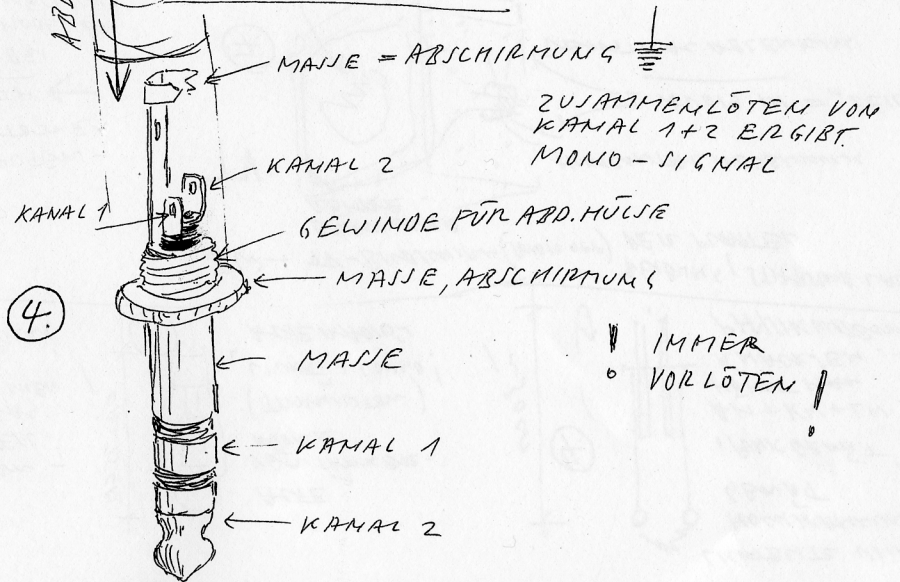 MASSE = ABSCHIRMUNG
ZUSAMMENLÖTEN VON
KANAL 1+2 ERGIBT
MONO-SIGNAL
KANAL 2
KANAL 1
GEWINDE FÜR ABD.HÜLSE
MASSE, ABSCHIRMUNG
4.
MASSE
! IMMER
VORLÖTEN !
KANAL 1
KANAL 2